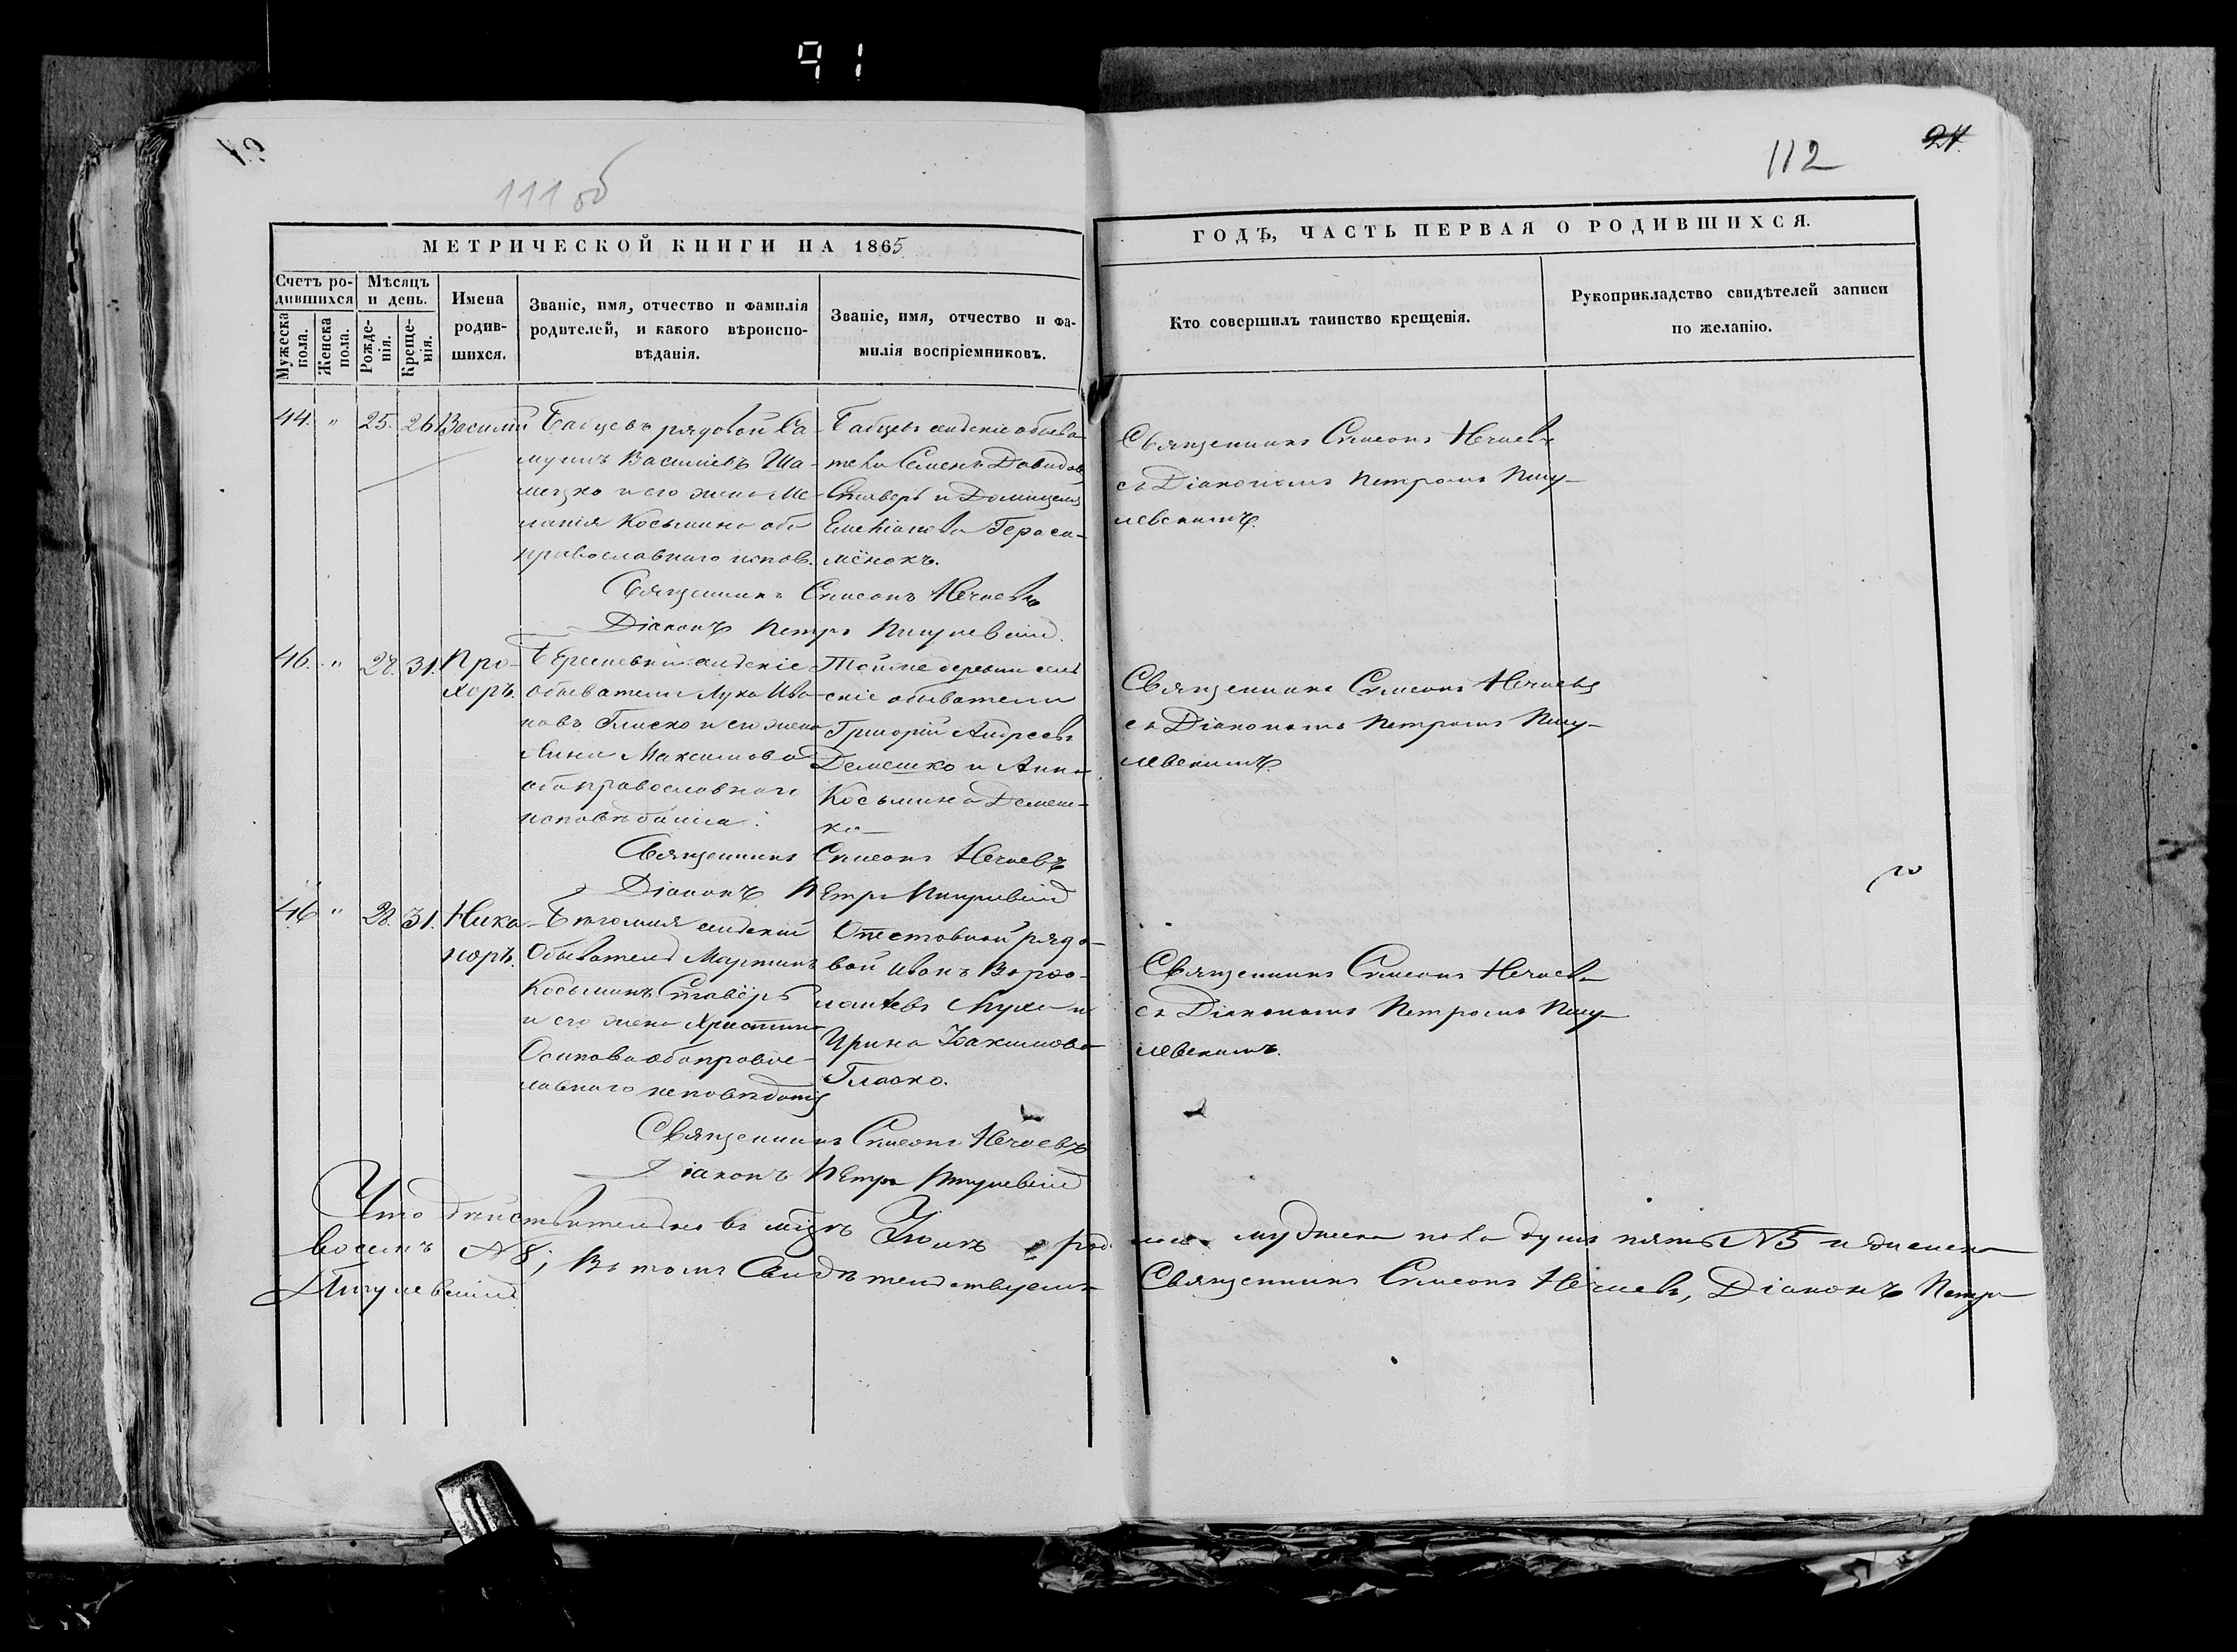 91
111 об
112
24.
МЕТРИЧЕСКОЙ КНИГИ НА 1865.
ГОДЪ, ЧАСТЬ ПЕРВАЯ О РОДИВШИХСЯ.
Счетъ ро-
дившихся
Мужеска
пола.
Женска
пола.
Мѣсяцъ
и день.
Рожде-
нія.
Креще-
нія.
Имена
родив-
шихся.
Званіе, имя, отчество и фамилія
родителей, и какого вѣроиспо-
вѣданія.
Званіе, имя, отчество и фа-
милія воспріемниковъ.
Кто совершилъ таинство крещенія.
Рукоприкладство свидѣтелей записи
по желанію.
44. " 25. 26 Василій
рядовой Са-
муилъ Васильевъ Ша-
и его жена Ме-
ланія Косьмина оба
православнаго испов.
обыва-
тели Семенъ Давидовъ
Ставеръ и Домникія
Емеліанова Гераси-
мёнокъ.
Священникъ Симеонъ Нечаевъ
съ Діакономъ Петромъ Пигу-
левскимъ.
Священникъ Симеонъ Нечаевъ
Діаконъ Петръ Пигулевскій.
46. " 28. 31. Про-
хоръ.
обыватели Лука Ива-
новъ и его жена
Анна Максимова
оба православнаго
исповѣданія.
Тойже деревни сель
скіе обыватели
Григорій Андреевъ
Демешко и Анна
Косьмина Демеш-
ко
Священникъ Симеонъ Нечаевъ
съ Діакономъ Петромъ Пигу-
левскимъ.
Священникъ Симеонъ Нечаевъ
Діаконъ Петръ Пигулевскій
46 " 28. 31. Ника-
норъ.
сельскій
Обыватель Мартинъ
Косьминъ Ставёръ
и его жена Христина
Осипова оба правос-
лавнаго исповѣданія
Отставной рядо-
вой Иванъ Варѳо-
ломѣевъ Муха и
Ирина Іоакимова
Гласко.
Священникъ Симеонъ Нечаевъ
съ Діакономъ Петромъ Пигу-
левскимъ.
Священникъ Симеонъ Нечаевъ
Діаконъ Петръ Пигулевскій
Что дѣйствительно въ мѣсяцъ Іюлѣ род мужеска пола душъ пять №5 и женска
восемь №8; Въ томъ Свидѣтельствуемъ Священникъ Симеонъ Нечаевъ, Діаконъ Петръ
Пигулевскій.